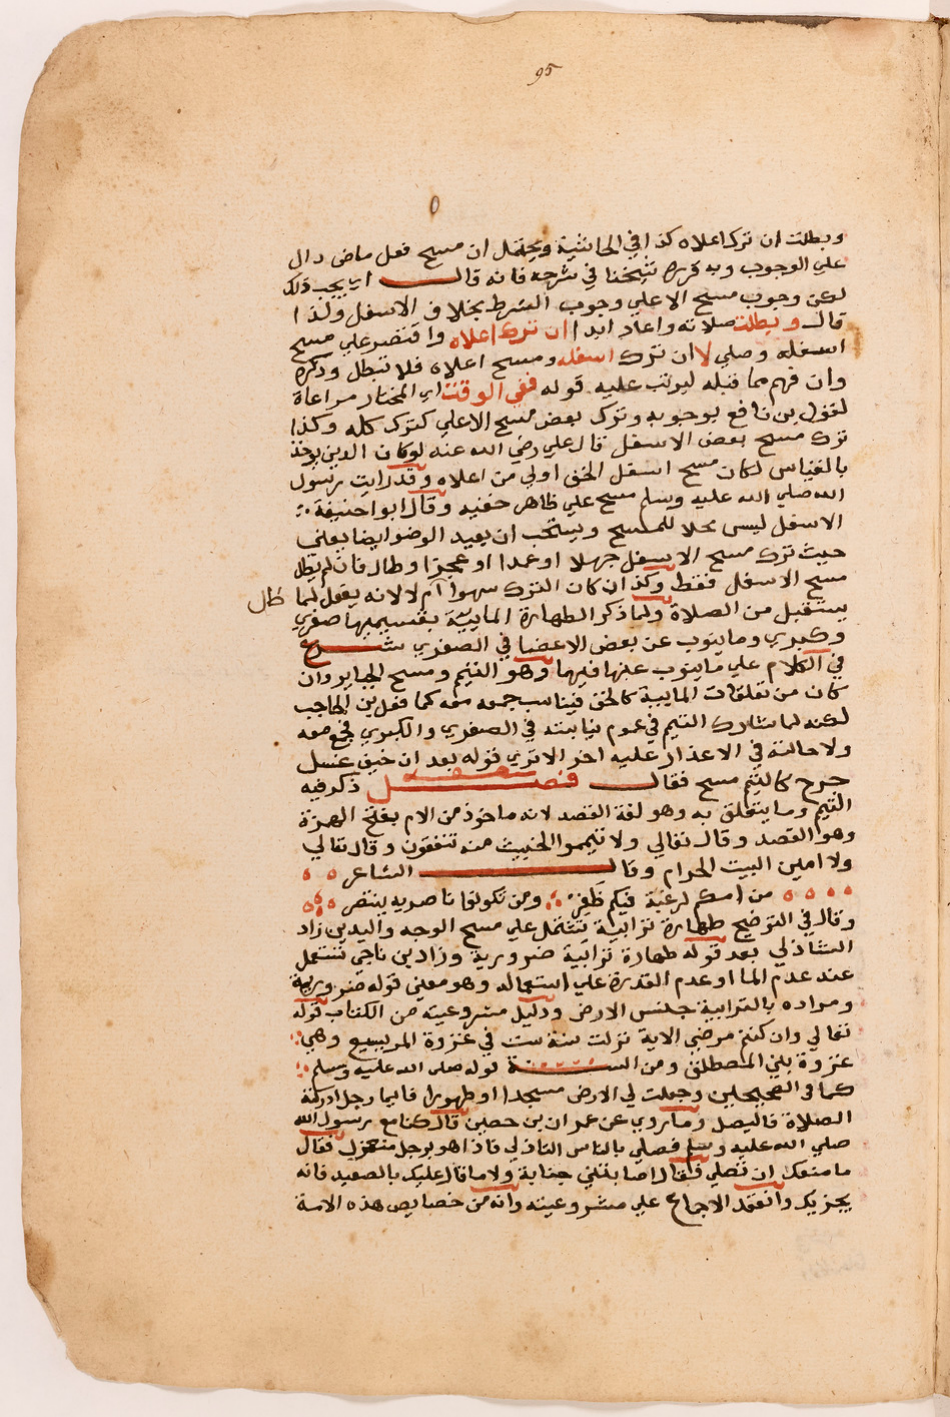 95
وبطلت ان ترك اعلاه كذا في الحاشية ويحتمل ان مسح فعل ماضى دال
علي الوجوب وبه قرره شيخنا في شرحه فانه قال اي يجب ذلك
لكن وجوب مسح الاعلي وجوب الشرط بخلاف الاسفل ولذا
قال وبطلت صلاته واعاد ابدا ان ترك اعلاه واقتصر علي مسح
اسفله وصلي لا ان ترك اسفله ومسح اعلاه فلا تبطل وذكره
وان فهم مما قبله ليرتب عليه قوله ففي الوقت اي المختار مراعاة
لقول بن نافع بوجوبه وترك بعض مسح الاعلي كترك كله وكذا
ترك مسح بعض الاسفل قال علي رضي الله عنه لوكان الدين يوخذ
بالقياس لكان مسح اسفل الخف اولي من اعلاه وقد رايت رسول
الله صلي الله عليه وسلم مسح علي ظاهر خفيه وقال ابوا حنيفة
الاسفل ليس محلا للمسح ويستحب ان يعيد الوضو ايضا يعني
حيث ترك مسح الاسفل جهلا او عمدا او عجزا وطال فان لم يطل
مسح الاسفل فقط وكذا ان كان الترك سهوا ام لا لانه يفعل لما
طال
يستقبل من الصلاة ولما ذكر الطهارة المايية بقسيميها صغري
وكبري وما ينوب عن بعض الاعضا في الصغري شرع
في الكلام علي ما ينوب عنها فيها وهو التيمم ومسح الجباير وان
كان من تعلقات المايية كالخف فيناسب جمعه معه كما فعل بن الحاجب
لكنه لما شارك التيمم في عموم نيابته في الصغري والكبري جمع معه
ولاحالته في الاعذار عليه اخر الا تري قوله بعد ان خيف غسل
جرح كالتيمم مسح فقال فصل ذكر فيه
التيمم وما يتعلق به وهو لغة القصد لانه ماخوذ من الام بفتح الهمزة
وهو القصد وقال تعالي ولا تيمموا الخبيث منه تنفقون وقال تعالي
ولا امين البيت الحرام وقال الشاعر
من امكم لرغبة فيكم ظفر ومن تكونوا ناصريه ينتصر
وقال في التوضيح طهارة ترابية تشتمل علي مسح الوجه واليدين زاد
الشاذلي بعد قوله طهارة ترابية ضرورية وزاد بن ناجي تستعمل
عند عدم الما او عدم القدرة علي استعماله وهو معني قوله ضرورية
ومراده بالترابية جنس الارض ودليل مشروعيته من الكتاب قوله
تعالي وان كنتم مرضي الاية نزلت سنة ست في غزوة المريسيع وهي
غزوة بني المصطلق ومن السنة قوله صلى الله عليه وسلم
كما في الصحيحين وجعلت لي الارض مسجدا او طهورا فايما رجل ادركته
الصلاة فاليصل وما روي عن عمران بن حصين قال كنا مع رسول الله
صلي الله عليه وسلم فصلي بالناس فاذا هو برجل منعزل فقال
ما منعك ان تصلي فقال اصابتني جنابة ولا ما قال عليك بالصعيد فانه
يجزيك وانعقد الاجماع علي مشروعيته وانه من خصايص هذه الامة